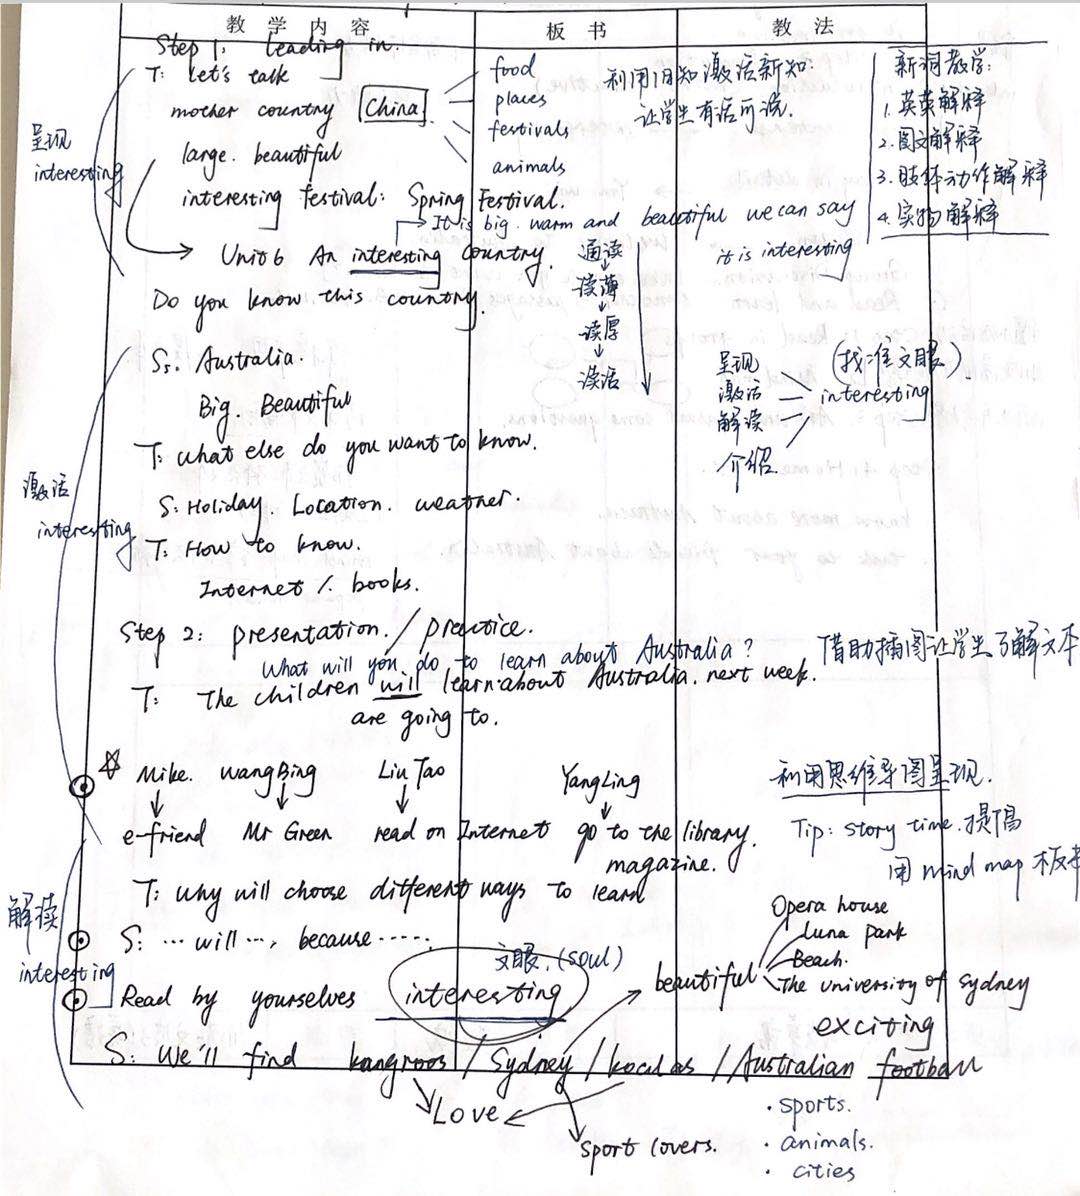 教学内容 板书 教法
Step 1: Leading in:
T: Let's talk
mother country China
food
places
festivals
animals
利用旧知激活新知:
让学生有话可说.
新词教学:
1. 英英解释
2. 图文解释
3. 肢体动作解释
4. 实物解释
呈现
interesting
large. beautiful
interesting festival: Spring Festival.
It is big. warm and beautiful we can say
it is interesting
Unit 6 An interesting country.
通读
读薄
读厚
读活
Do you know this country.
Ss: Australia.
Big. Beautiful
呈现
激活
解读
介绍
(找准文眼).
interesting
T: what else do you want to know.
激活
interesting
S: Holiday. Location. weather.
T: How to know.
Internet / books.
Step 2: presentation. / practice.
What will you do to learn about Australia?
借助插图让学生了解文本
T: The children will learn about Australia. next week.
are going to.
Mike. wangBing Liu Tao YangLing
利用思维导图呈现.
e-friend Mr Green read on Internet go to the library.
magazine.
Tip: story time.提倡
用 mind map 板书
T: why will choose different ways to learn
解读
interesting
S: ... will ..., because ......
Opera house
Luna Park
Beach.
The university of sydney
文眼.(soul)
Read by yourselves interesting
beautiful
exciting
S: We'll find kangroos / Sydney / koalas / /Australian football
Love
sport lovers.
· sports.
· animals.
· cities